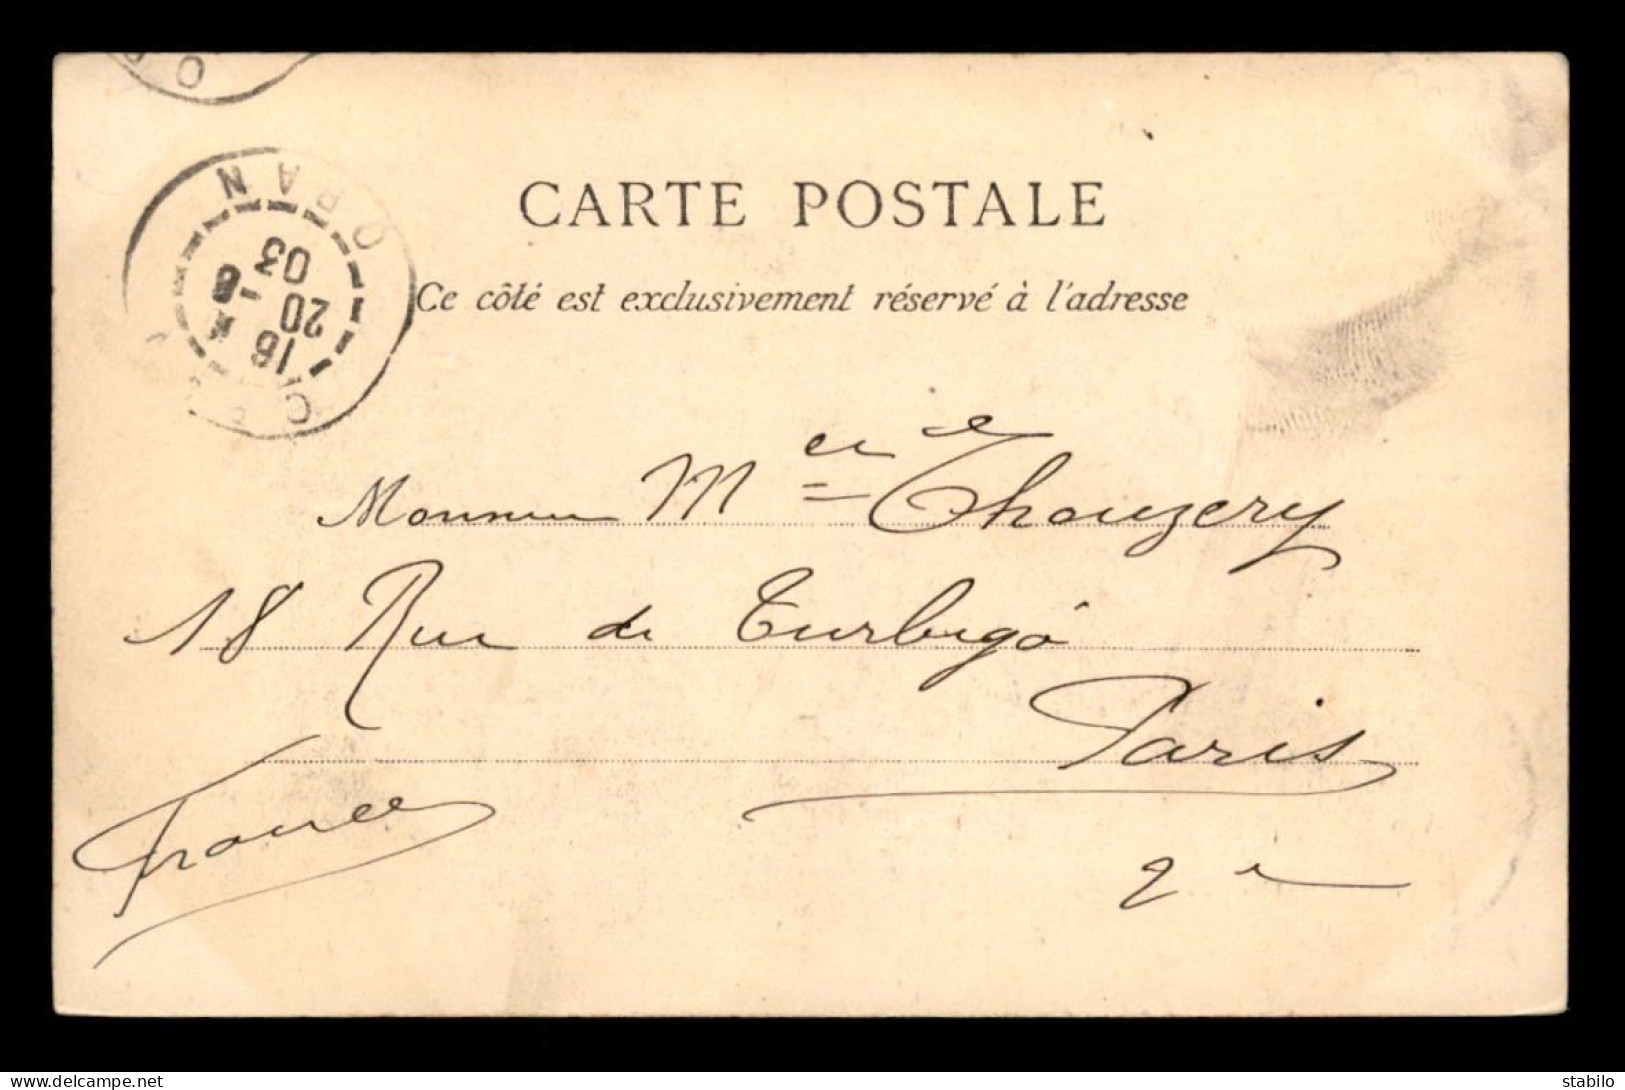 ORAN
18
20
8
03
CARTE POSTALE
Ce côté est exclusivement réservé à l'adresse
Monsieur Mce Thouzery
18 Rue de Turbigo
Paris
France
2e
delcampe.net
stabilo